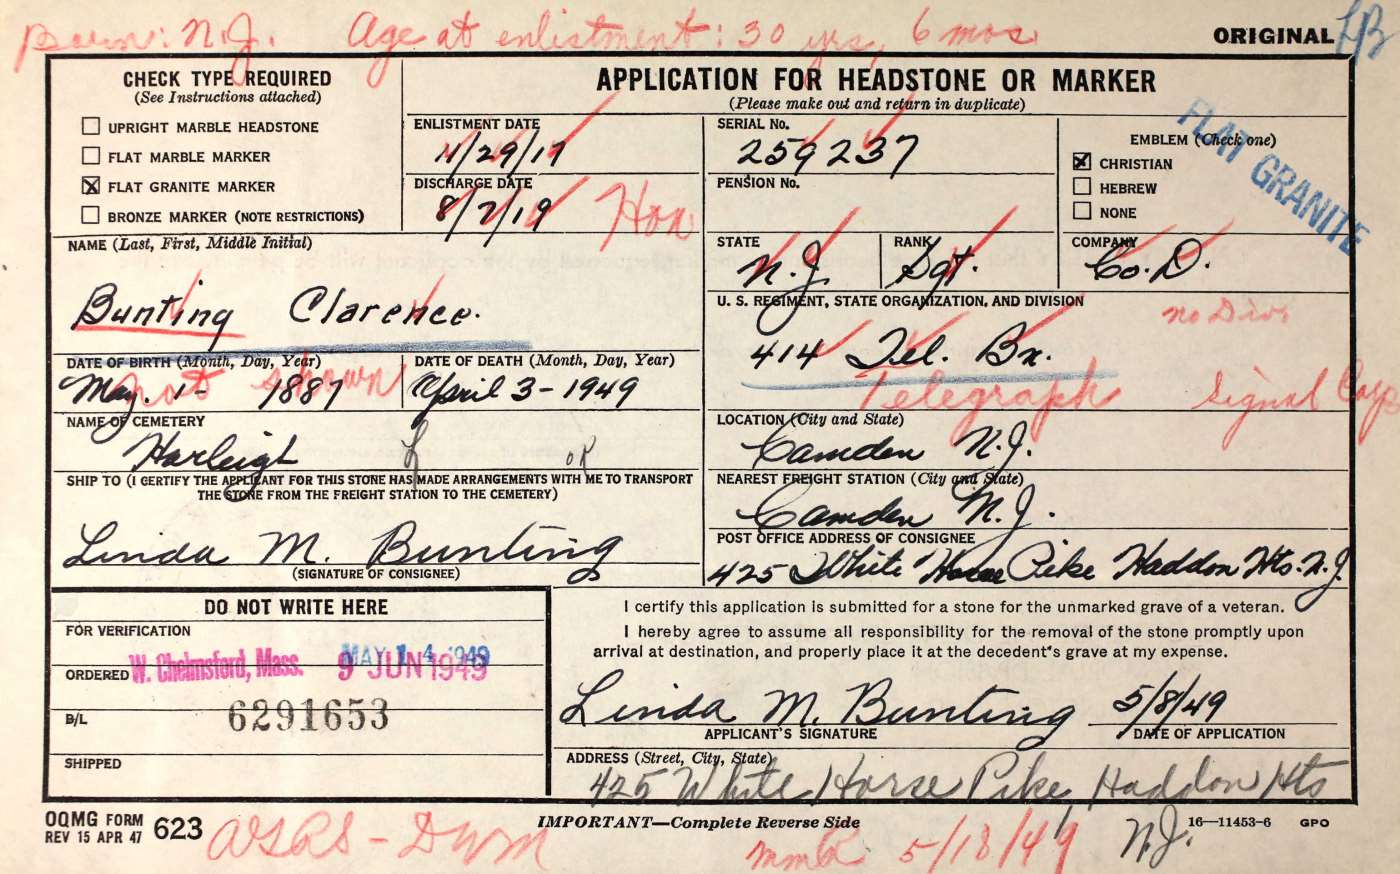 Born: N.J. Age at enlistment: 30 yrs, 6 mos.
ORIGINAL
CHECK TYPE REQUIRED
(See Instructions attached)
UPRIGHT MARBLE HEADSTONE
FLAT MARBLE MARKER
☒ FLAT GRANITE MARKER
BRONZE MARKER (NOTE RESTRICTIONS)
APPLICATION FOR HEADSTONE OR MARKER
(Please make out and return in duplicate)
ENLISTMENT DATE
11/29/17
DISCHARGE DATE
8/7/19
Hon
SERIAL No.
259237
PENSION No.
EMBLEM (Check one)
☒ CHRISTIAN
HEBREW
NONE
FLAT GRANITE
NAME (Last, First, Middle Initial)
Bunting Clarence.
STATE
N.J.
RANK
Sgt.
COMPANY
Co. D.
U. S. REGIMENT, STATE ORGANIZATION, AND DIVISION
no Div.
414 Tel. Bn.
Telegraph Signal Corps
DATE OF BIRTH (Month, Day, Year)
May. 1- 1887
not shown
DATE OF DEATH (Month, Day, Year)
April 3-1949
NAME OF CEMETERY
Harleigh
LOCATION (City and State)
Camden N.J.
SHIP TO (I CERTIFY THE APPLICANT FOR THIS STONE HAS MADE ARRANGEMENTS WITH ME TO TRANSPORT
THE STONE FROM THE FREIGHT STATION TO THE CEMETERY)
Linda M. Bunting
(SIGNATURE OF CONSIGNEE)
NEAREST FREIGHT STATION (City and State)
Camden N.J.
POST OFFICE ADDRESS OF CONSIGNEE
425 White Horse Pike Haddon Hts. N.J.
DO NOT WRITE HERE
FOR VERIFICATION
MAY 14 1949
ORDERED W. Chelmsford, Mass. 9 JUN 1949
B/L
6291653
SHIPPED
I certify this application is submitted for a stone for the unmarked grave of a veteran.
I hereby agree to assume all responsibility for the removal of the stone promptly upon
arrival at destination, and properly place it at the decedent's grave at my expense.
Linda M. Bunting 5/8/49
APPLICANT'S SIGNATURE DATE OF APPLICATION
ADDRESS (Street, City, State)
425 White Horse Pike, Haddon Hts
N.J.
OQMG FORM
REV 15 APR 47 623
IMPORTANT—Complete Reverse Side
16—11453-6 GPO
5/18/49